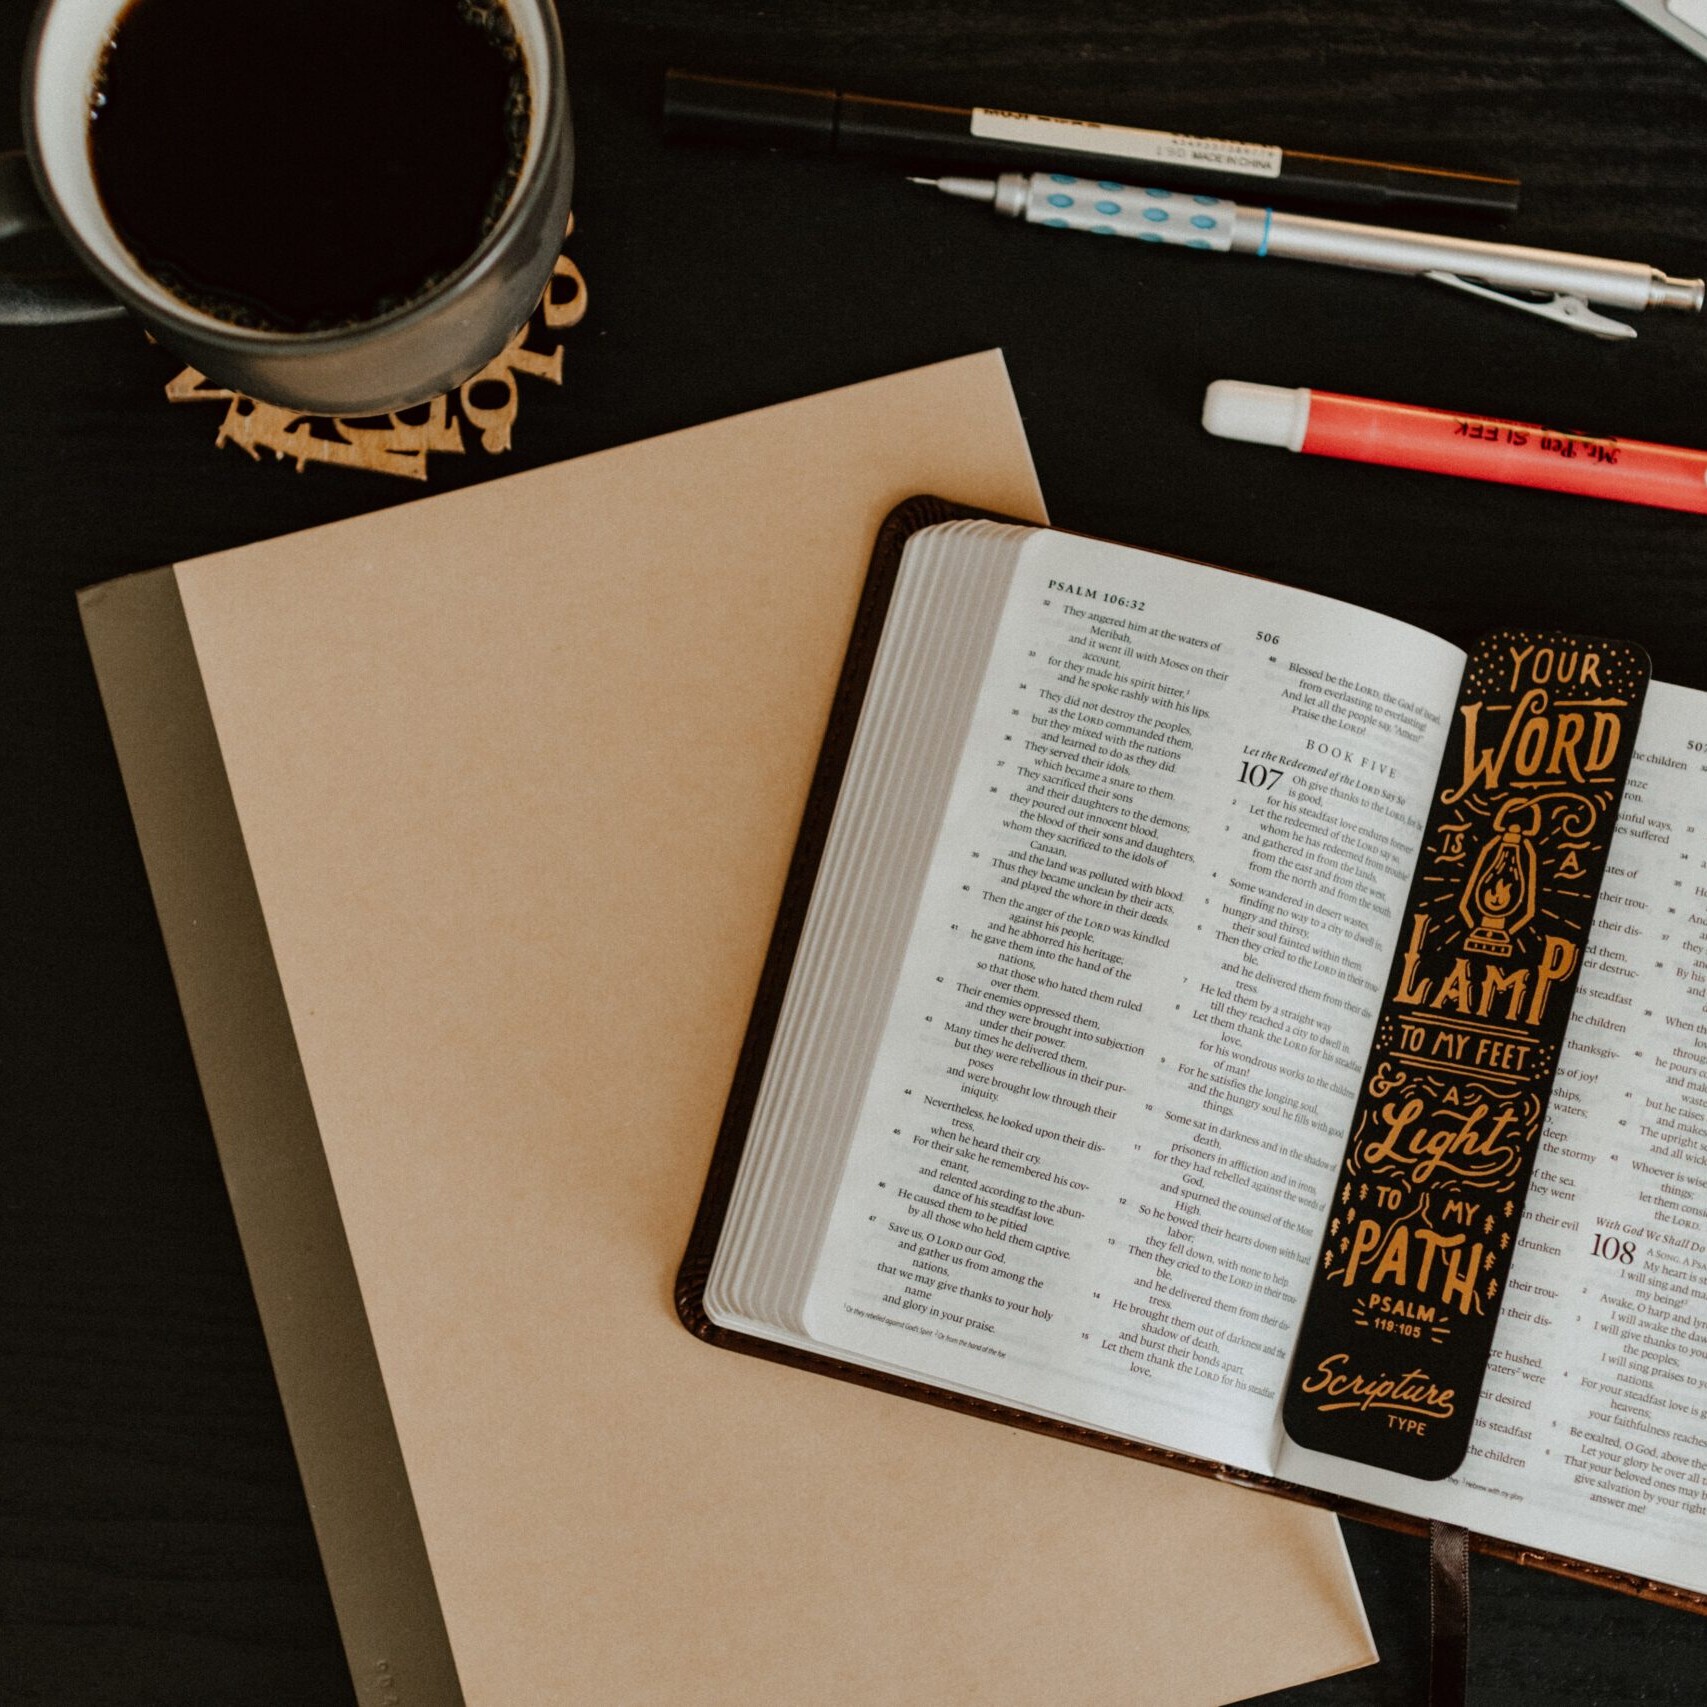 MADE IN CHINA
Mr. Pen SLEEK
PSALM 106:32
32 They angered him at the waters of
Meribah,
and it went ill with Moses on their
account,
33 for they made his spirit bitter,1
and he spoke rashly with his lips.
34 They did not destroy the peoples,
as the LORD commanded them,
35 but they mixed with the nations
and learned to do as they did.
36 They served their idols,
which became a snare to them.
37 They sacrificed their sons
and their daughters to the demons;
38 they poured out innocent blood,
the blood of their sons and daughters,
whom they sacrificed to the idols of
Canaan,
and the land was polluted with blood.
39 Thus they became unclean by their acts,
and played the whore in their deeds.
40 Then the anger of the LORD was kindled
against his people,
and he abhorred his heritage;
41 he gave them into the hand of the
nations,
so that those who hated them ruled
over them.
42 Their enemies oppressed them,
and they were brought into subjection
under their power.
43 Many times he delivered them,
but they were rebellious in their pur-
poses
and were brought low through their
iniquity.
44 Nevertheless, he looked upon their dis-
tress,
when he heard their cry.
45 For their sake he remembered his cov-
enant,
and relented according to the abun-
dance of his steadfast love.
46 He caused them to be pitied
by all those who held them captive.
47 Save us, O LORD our God,
and gather us from among the
nations,
that we may give thanks to your holy
name
and glory in your praise.
1 Or they rebelled against God's Spirit 2 Or from the hand of the foe
506
48 Blessed be the LORD, the God of Israel,
from everlasting to everlasting!
And let all the people say, "Amen!"
Praise the LORD!
BOOK FIVE
Let the Redeemed of the LORD Say So
107 Oh give thanks to the LORD, for he
is good,
for his steadfast love endures forever!
2 Let the redeemed of the LORD say so,
whom he has redeemed from trouble
3 and gathered in from the lands,
from the east and from the west,
from the north and from the south.
4 Some wandered in desert wastes,
finding no way to a city to dwell in;
5 hungry and thirsty,
their soul fainted within them.
6 Then they cried to the LORD in their trou-
ble,
and he delivered them from their dis-
tress.
7 He led them by a straight way
till they reached a city to dwell in.
8 Let them thank the LORD for his steadfast
love,
for his wondrous works to the children
of man!
9 For he satisfies the longing soul,
and the hungry soul he fills with good
things.
10 Some sat in darkness and in the shadow of
death,
prisoners in affliction and in irons,
11 for they had rebelled against the words of
God,
and spurned the counsel of the Most
High.
12 So he bowed their hearts down with hard
labor;
they fell down, with none to help.
13 Then they cried to the LORD in their trou-
ble,
and he delivered them from their dis-
tress.
14 He brought them out of darkness and the
shadow of death,
and burst their bonds apart.
15 Let them thank the LORD for his steadfast
love,
YOUR
WORD
IS A
LAMP
TO MY FEET
& A
Light
TO MY
PATH
PSALM
119:105
Scripture
TYPE
he children
sinful ways,
ies suffered
ates of
their trou-
their dis-
ed them,
eir destruc-
his steadfast
he children
thanksgiv-
s of joy!
ships,
waters;
deep.
the stormy
f the sea.
they went
in their evil
drunken
their trou-
their dis-
were hushed.
waters2 were
eir desired
his steadfast
the children
2 Hebrew with my glory
With God We Shall Do
108
My heart is
I will sing and
my being!
2 Awake, O harp and
I will awake the
3 I will give thanks to
the peoples;
I will sing praises to
nations.
4 For your steadfast love is
heavens;
your faithfulness reaches
5 Be exalted, O God, above the
Let your glory be over all
6 That your beloved ones may
give salvation by your right
answer me!